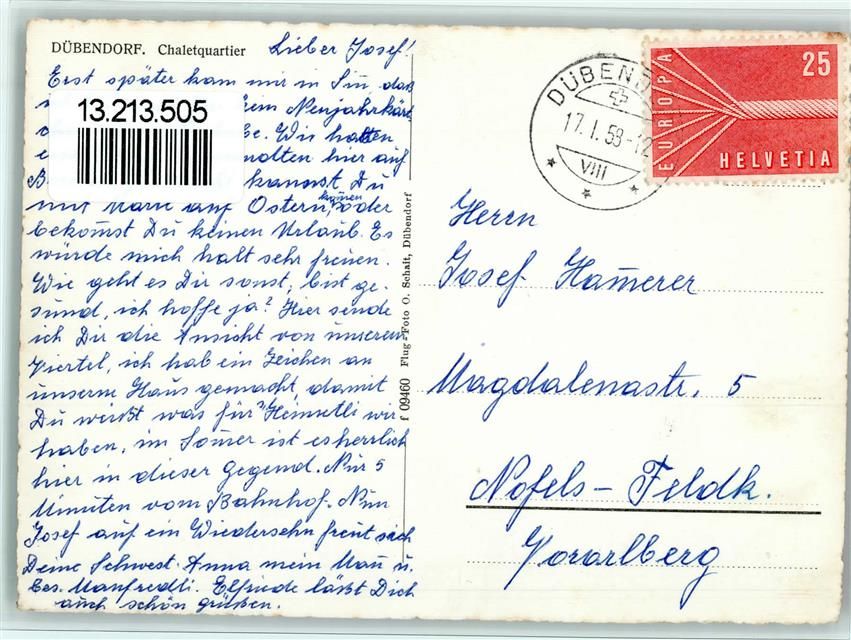 DÜBENDORF. Chaletquartier
Lieber Josef!
Erst später kam mir in Sin̅, daß
Neujahrkärt
13.213.505
be. Wir hatten
hier auf
kannst Du
auf Ostern können, oder
bekom̅st Du keinen Urlaub. Es
würde mich halt sehr freuen.
Wie geht es Dir sonst, bist ge-
sund, ich hoffe ja? Hier sende
ich Dir die Ansicht von unserem
Viertel, ich hab ein Zeichen an
unserm Haus gemacht, damit
Du weißt was für "Heimetli wir
haben, im Som̅er ist es herrlich
hier in dieser Gegend. Nur 5
Minuten vom Bahnhof. Nun
Josef auf ein Wiedersehn freut sich
Deine Schwest. Anna mein Man̅ u.
bes. Manfredli. Elfriede läßt Dich
auch schön grüßen.
f 09460 Flug-Foto O. Schait, Dübendorf
DÜBENDO
17.I.58-12
VIII
EUROPA
25
HELVETIA
Herrn
Josef Ham̅erer
Magdalenastr. 5
Nofels-Feldk.
Vorarlberg